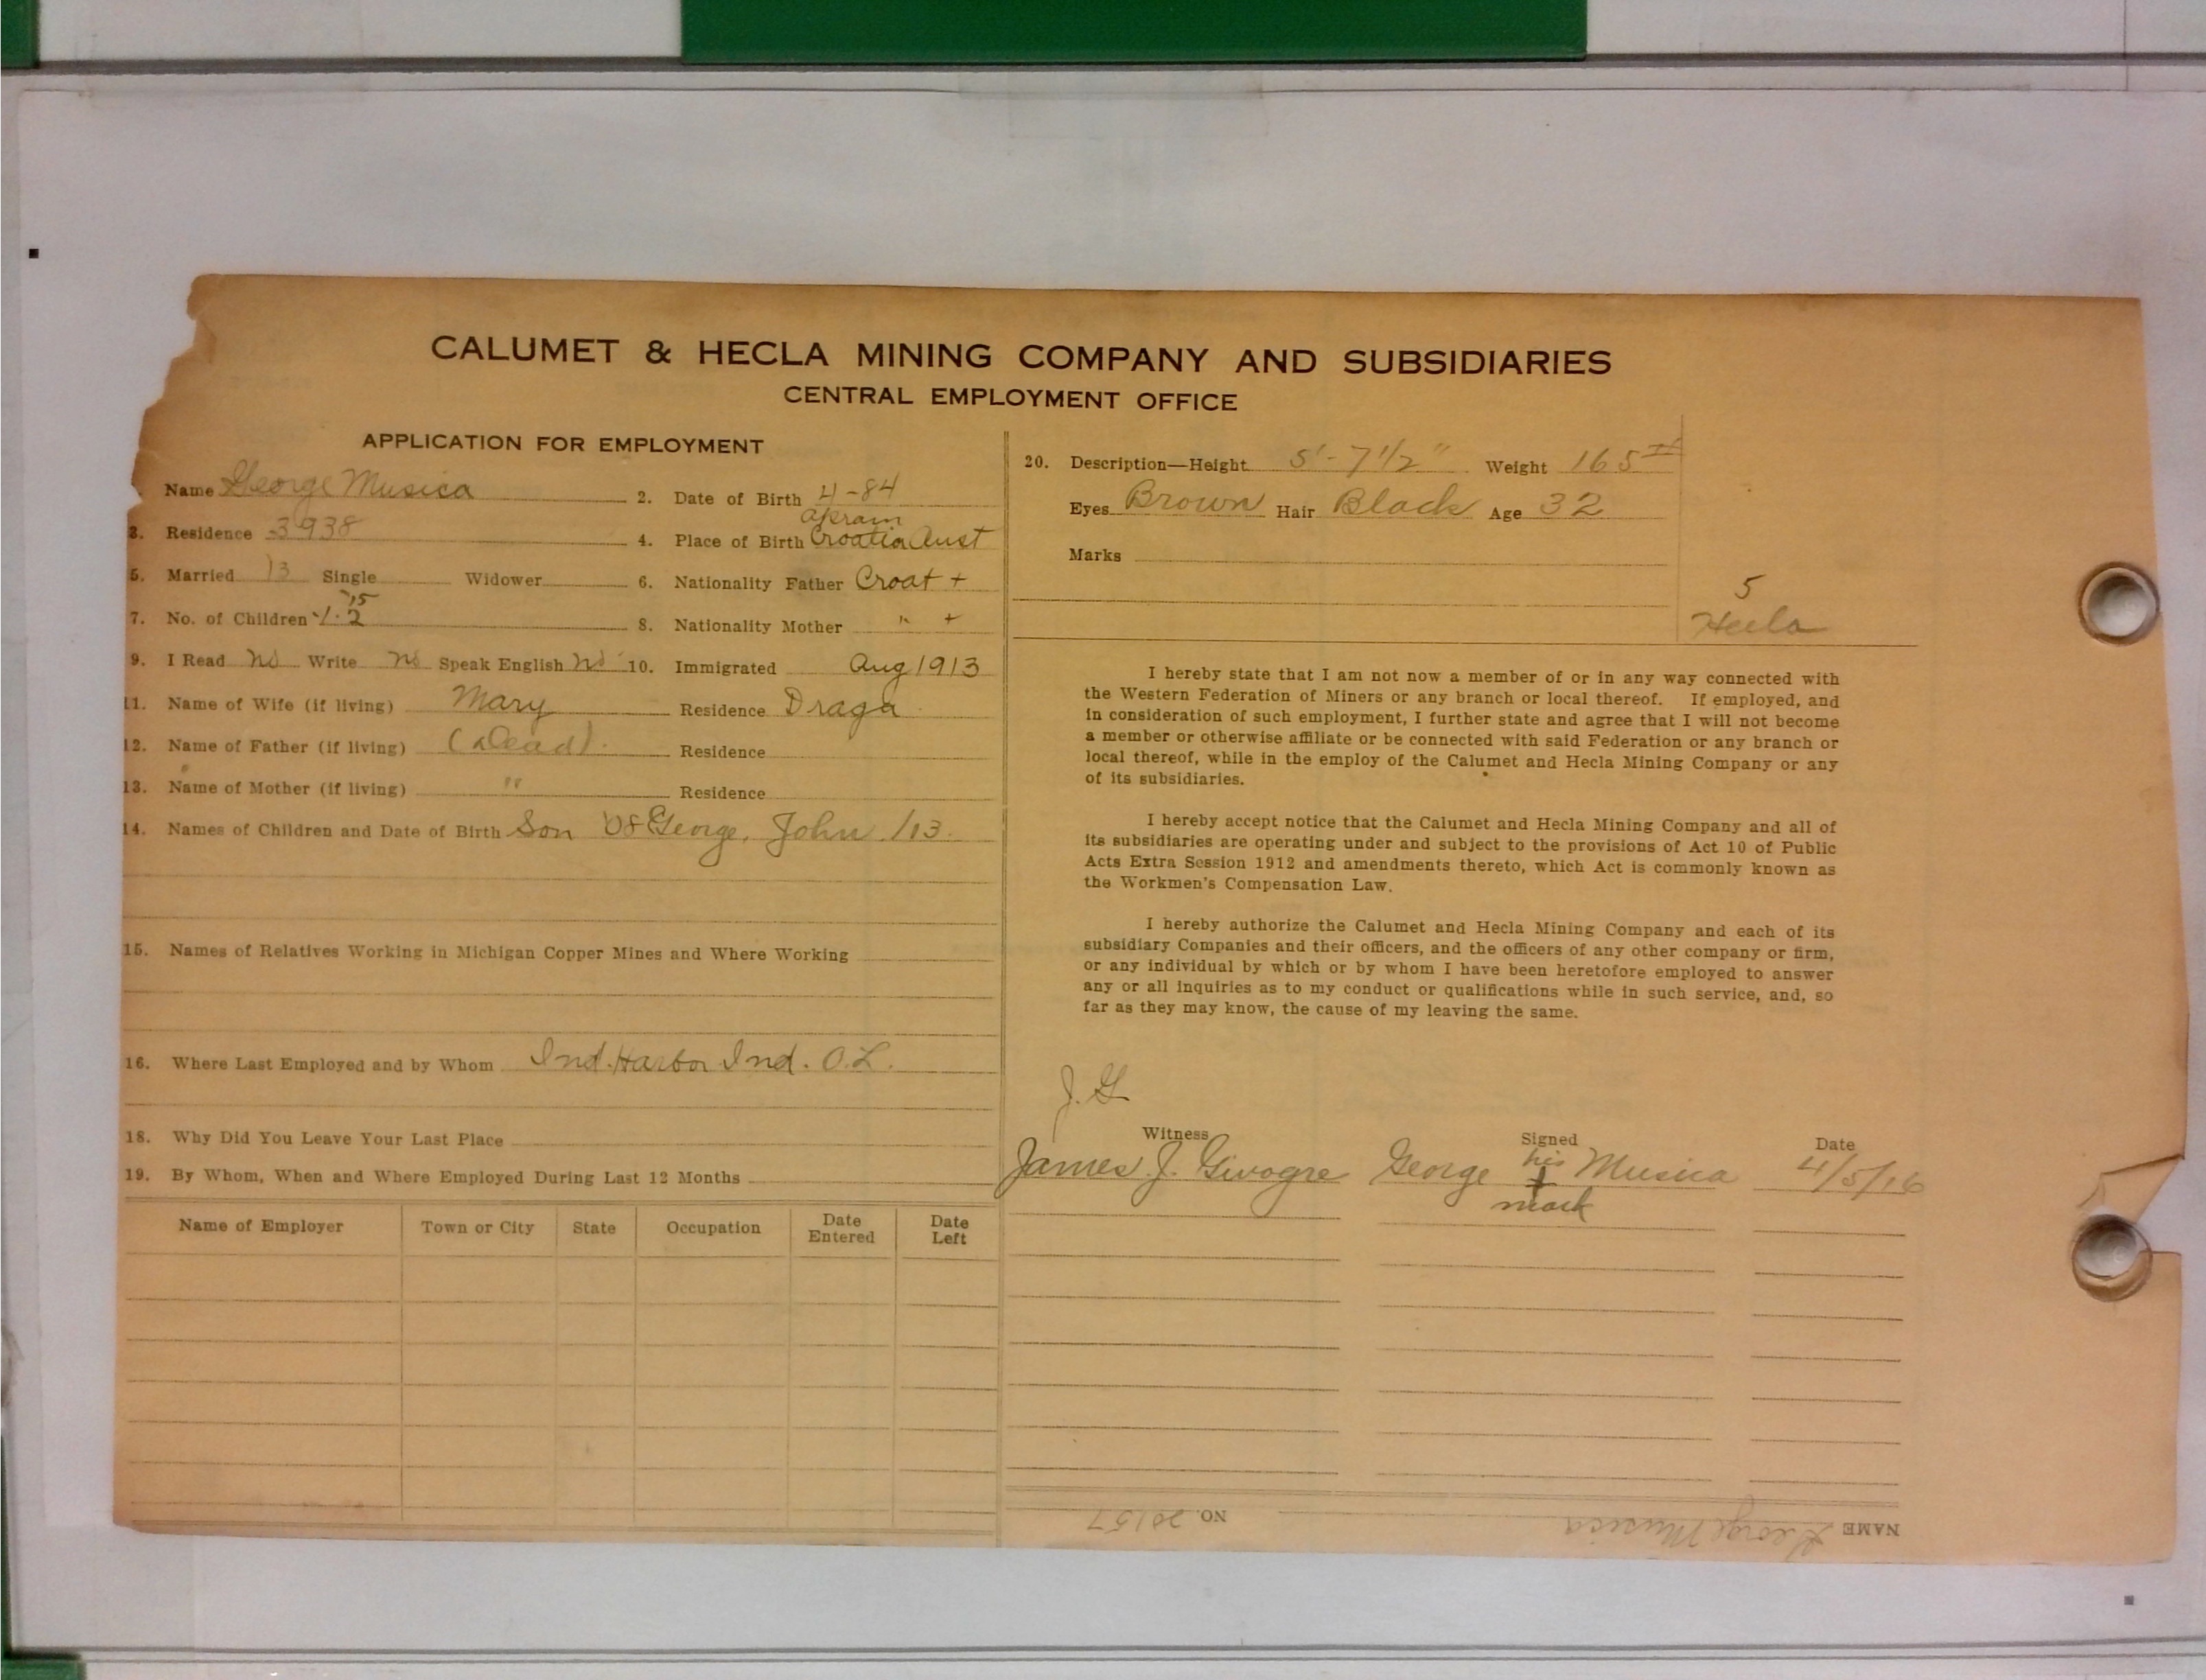 CALUMET & HECLA MINING COMPANY AND SUBSIDIARIES
CENTRAL EMPLOYMENT OFFICE
APPLICATION FOR EMPLOYMENT
Name George Musica 2. Date of Birth 4-84
3. Residence 3938 4. Place of Birth Akram Croatia Aust
5. Married 13 Single Widower 6. Nationality Father Croat +
7. No. of Children 2 '15 8. Nationality Mother " +
9. I Read no Write no Speak English no 10. Immigrated Aug 1913
11. Name of Wife (if living) Mary Residence Draga
12. Name of Father (if living) (Dead). Residence
13. Name of Mother (if living) " Residence
14. Names of Children and Date of Birth Son '08 George, John /13.
15. Names of Relatives Working in Michigan Copper Mines and Where Working
16. Where Last Employed and by Whom Ind. Harbor Ind. O.L.
18. Why Did You Leave Your Last Place
19. By Whom, When and Where Employed During Last 12 Months
Name of Employer Town or City State Occupation Date Entered Date Left
20. Description—Height 5'-7 1/2" Weight 165 #
Eyes Brown Hair Black Age 32
Marks
5
Hecla
I hereby state that I am not now a member of or in any way connected with
the Western Federation of Miners or any branch or local thereof. If employed, and
in consideration of such employment, I further state and agree that I will not become
a member or otherwise affiliate or be connected with said Federation or any branch or
local thereof, while in the employ of the Calumet and Hecla Mining Company or any
of its subsidiaries.
I hereby accept notice that the Calumet and Hecla Mining Company and all of
its subsidiaries are operating under and subject to the provisions of Act 10 of Public
Acts Extra Session 1912 and amendments thereto, which Act is commonly known as
the Workmen's Compensation Law.
I hereby authorize the Calumet and Hecla Mining Company and each of its
subsidiary Companies and their officers, and the officers of any other company or firm,
or any individual by which or by whom I have been heretofore employed to answer
any or all inquiries as to my conduct or qualifications while in such service, and, so
far as they may know, the cause of my leaving the same.
J. G
Witness Signed Date
James J. Givogre George his + mark Musica 4/5/16
NAME George Musica NO. 20157